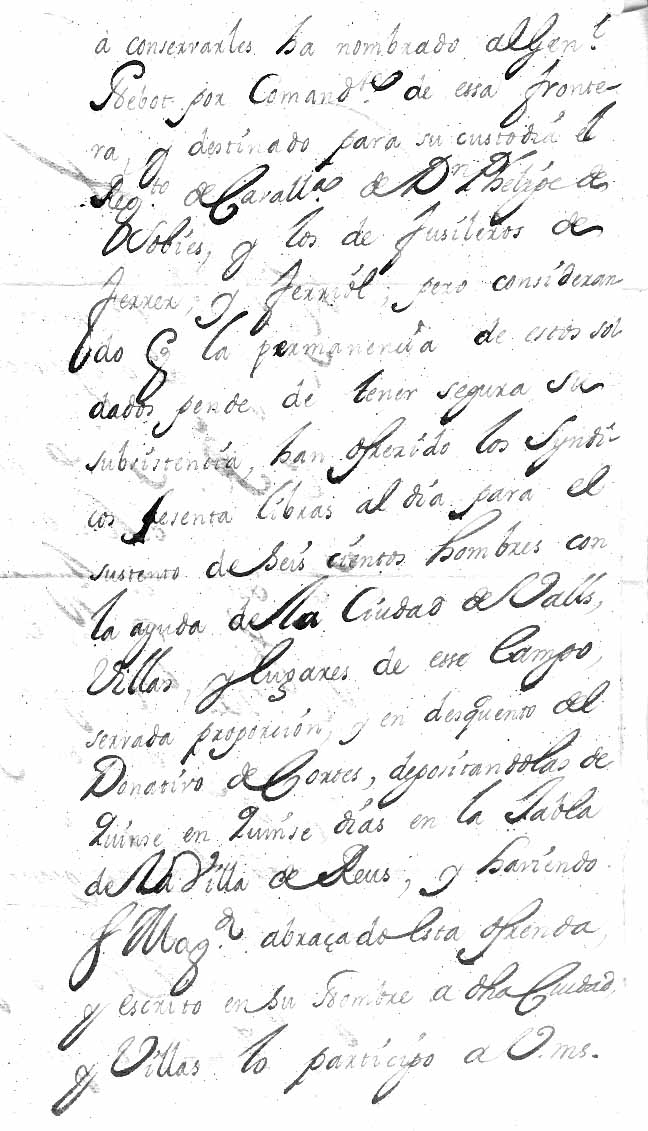 à conservarles ha nombrado al Gen.l
Nebot por Comand.te de essa fronte-
ra, y destinado para su custodia el
Reg.to de Cavall.a de D.n Phelipe de
Sobies, y los de fusileros de
ferrer, y ferriól, pero consideran
do q la permanencia de estos sol
dados pende de tener segura su
subsistencia, han ofrezido los Syndi-
cos sesenta libras al dia para el
sustento de Seis cientos hombres con
la ayuda de la Ciudad de Valls,
Villas, y lugares de esse Campo,
servada proporción, y en desquento del
Donativo de Cortes, depositandolas de
Quinse en Quinse dias en la Tabla
de la Villa de Reus, y haviendo
S. Mag.d abraçado esta ofrenda,
y escrito en su Nombre a dha Ciudad,
y Villas lo participo a V.ms.